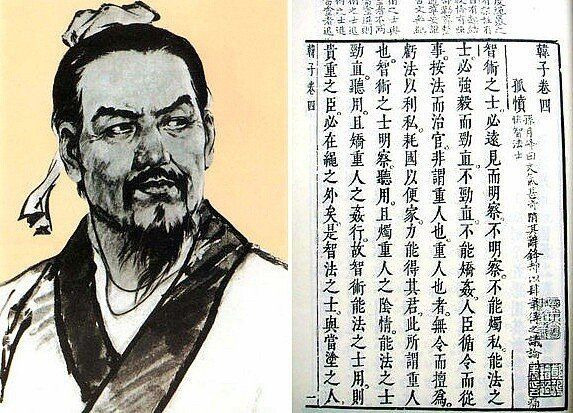 韓子卷四
孤憤
智術之士。必遠見而明察。不明察。不能燭私。能法之
士。必強毅而勁直。不勁直。不能矯姦。人臣循令而從
事。按法而治官。非謂重人也。重人也者。無令而擅為。
虧法以利私。耗國以便家。力能得其君。此所謂重人
也。智術之士。明察聽用。且燭重人之陰情。能法之士。
勁直聽用。且矯重人之姦行。故智術能法之士用。則
貴重之臣。必在繩之外矣。是智法之士。與當塗之人
韓子卷四
一